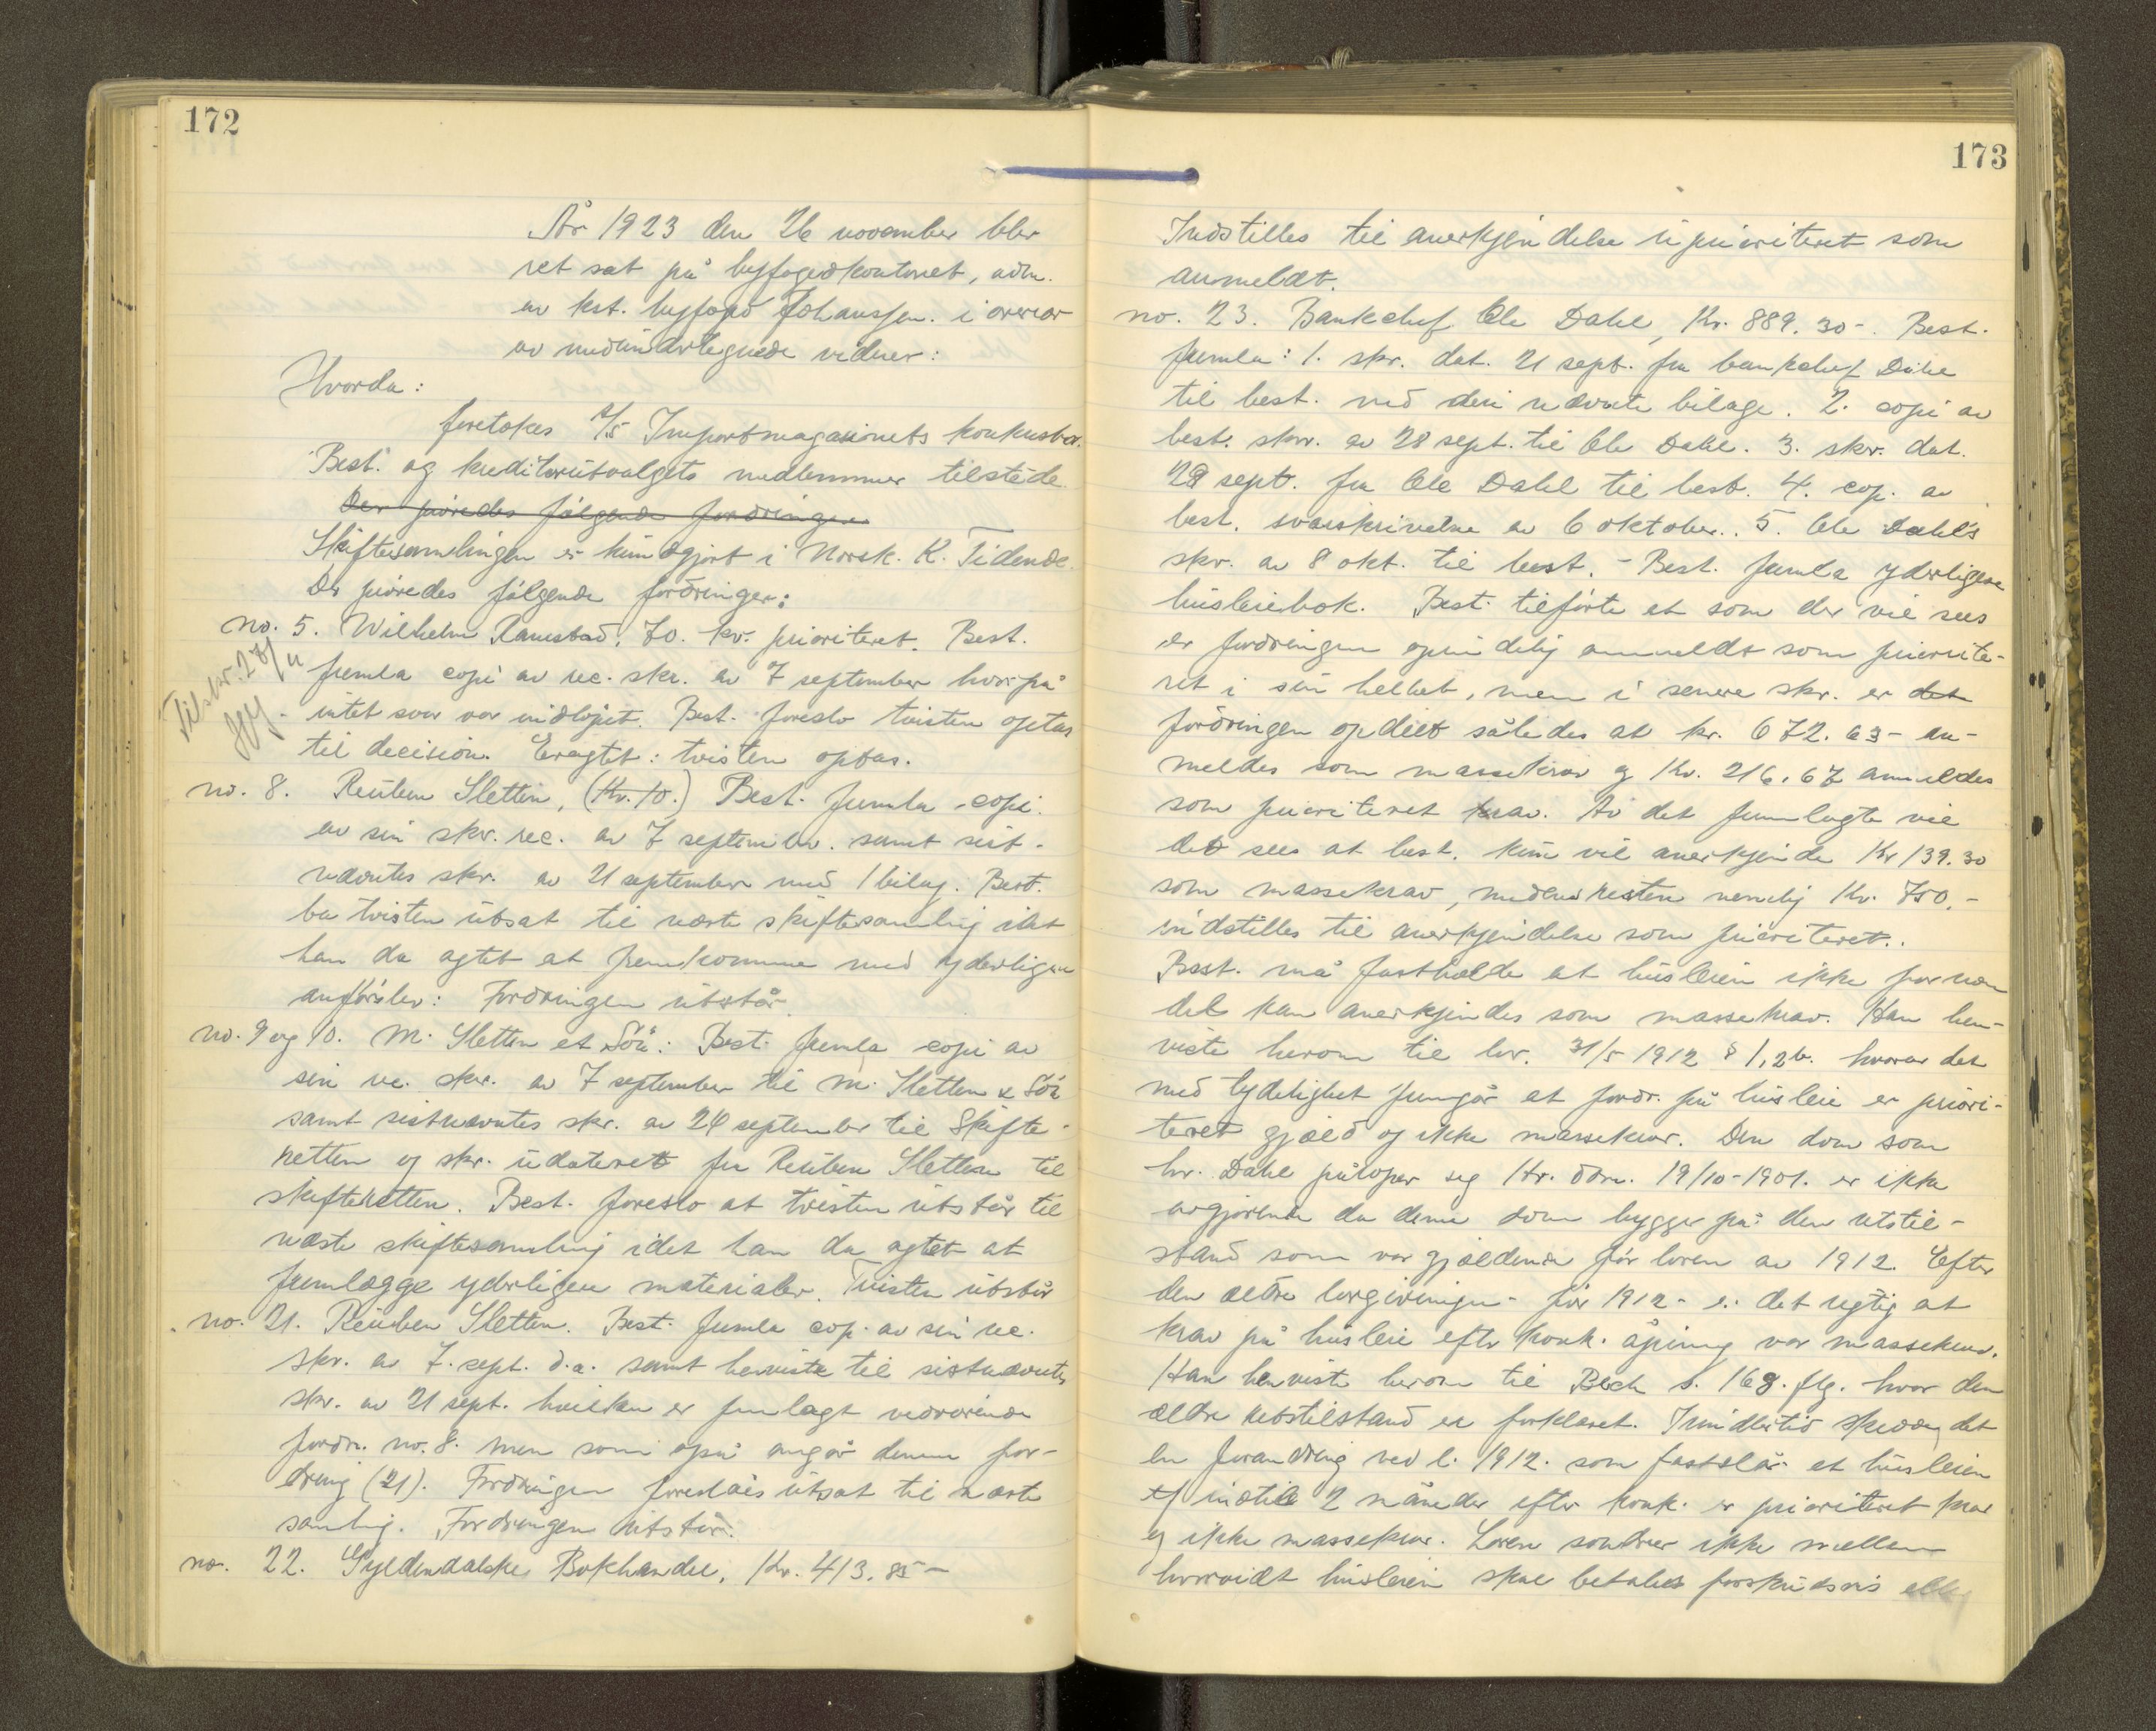 172
År 1923 den 26 november blev
ret sat på byfogedkontoret, adm.
av kst. byfoged Johanssen. i overvær
av medundertegnede vidner:
Hvorda:
foretokes A/S Importmagasinets konkursbo.
Best. og kreditorutvalgets medlemmer tilstede.
Der prøvedes følgende fordringer
Skiftesamlingen er kundgjort i Norsk. K. Tidende.
Der prøvedes følgende fordringer:
no. 5. Wilhelm Ramstad, 70. kr. prioriteret. Best.
Tilskr. 27/11
fremla copi av rec. skr. av 7 september hvorpå
intet svar var indløpet. Best. foreslo tvisten optas
til decision. Eragtet: tvisten optas.
no. 8. Reuben Sletten, (Kr. 10.) Best. fremla copi
av sin skr. rec. av 7 september. samt sist-
nævntes skr. av 21 september med 1 bilag. Best.
ba tvisten utsat til næste skiftesamling idet
han da agtet at fremkomme med yderligere
anførsler: Fordringen utstår.
no. 9 og 10. M. Sletten et Søn: Best. fremla copi av
sin rec. skr. av 7 september til M. Sletten & Søn
samt sistnævntes skr. av 26 september til Skifte-
retten og skr. udateret fra Reuben Sletten til
skifteretten. Best. foreslo at tvisten utstår til
næste skiftesamling idet han da agtet at
fremlægge yderligere materialer. Tvisten utstår
no. 21. Reuben Sletten. Best. fremla cop. av sin rec.
skr. av 7. sept. d.a. samt henviste til sistnævntes
skr. av 21 sept. hvilken er fremlagt vedrørende
fordr. no. 8. men som også angår denne for-
dring (21). Fordringen foreslåes utsat til næste
samling. Fordringen utstår.
no. 22. Gyldendalske Bokhandel, Kr. 413.85-
173
Indstilles til anerkjendelse uprioriteret som
anmeldt.
no. 23. Bankchef Ole Dahl, Kr. 889.30-. Best.
fremla: 1. skr. dat. 21 sept. fra bankchef Dahl
til best. med deri nævnte bilage. 2. copi av
best. skr. av 28 sept. til Ole Dahl. 3. skr. dat.
29 sept. fra Ole Dahl til best. 4. cop. av
best. svarskrivelse av 6 oktober. 5. Ole Dahl's
skr. av 8 okt. til best. - Best. fremla yderligere
husleiebok. Best. tilførte at som der vil sees
er fordringen oprindelig anmeldt som priorite-
ret i sin helhet, men i senere skr. er det
fordringen opdelt således at kr. 672.63- an-
meldes som massekrav og Kr. 216.67 anmeldes
som prioriteret krav. Av det fremlagte vil
det sees at best. kun vil anerkjende Kr 139.30
som massekrav, medens resten nemlig Kr. 750.-
indstilles til anerkjendelse som prioriteret.
Best. må fastholde at husleien ikke for noen
del kan anerkjendes som massekrav. Han hen-
viste herom til lov. 31/5 1912 § 1,2b. hvorav det
med tydelighet fremgår at fordr. på husleie er priori-
teret gjæld og ikke massekrav. Den dom som
hr. Dahl påroper seg Hr. dom. 19/10-1901. er ikke
avgjørende da denne dom bygger på den retstil-
stand som var gjældende før loven av 1912. Efter
den ældre lovgivningen - før 1912 - er det rigtig at
krav på husleie efter konk. åpning var massekrav.
Han henviste herom til Bech s. 168. flg. hvor den
ældre retstilstand er forklaret. Imidlertid skedde det
en forandring ved l. 1912. som fastslår at husleien
indtil 2 måneder efter konk. er prioriteret krav
og ikke massekrav. Loven sondrer ikke mellem
hvorvidt husleien skal betales forskudsvis eller